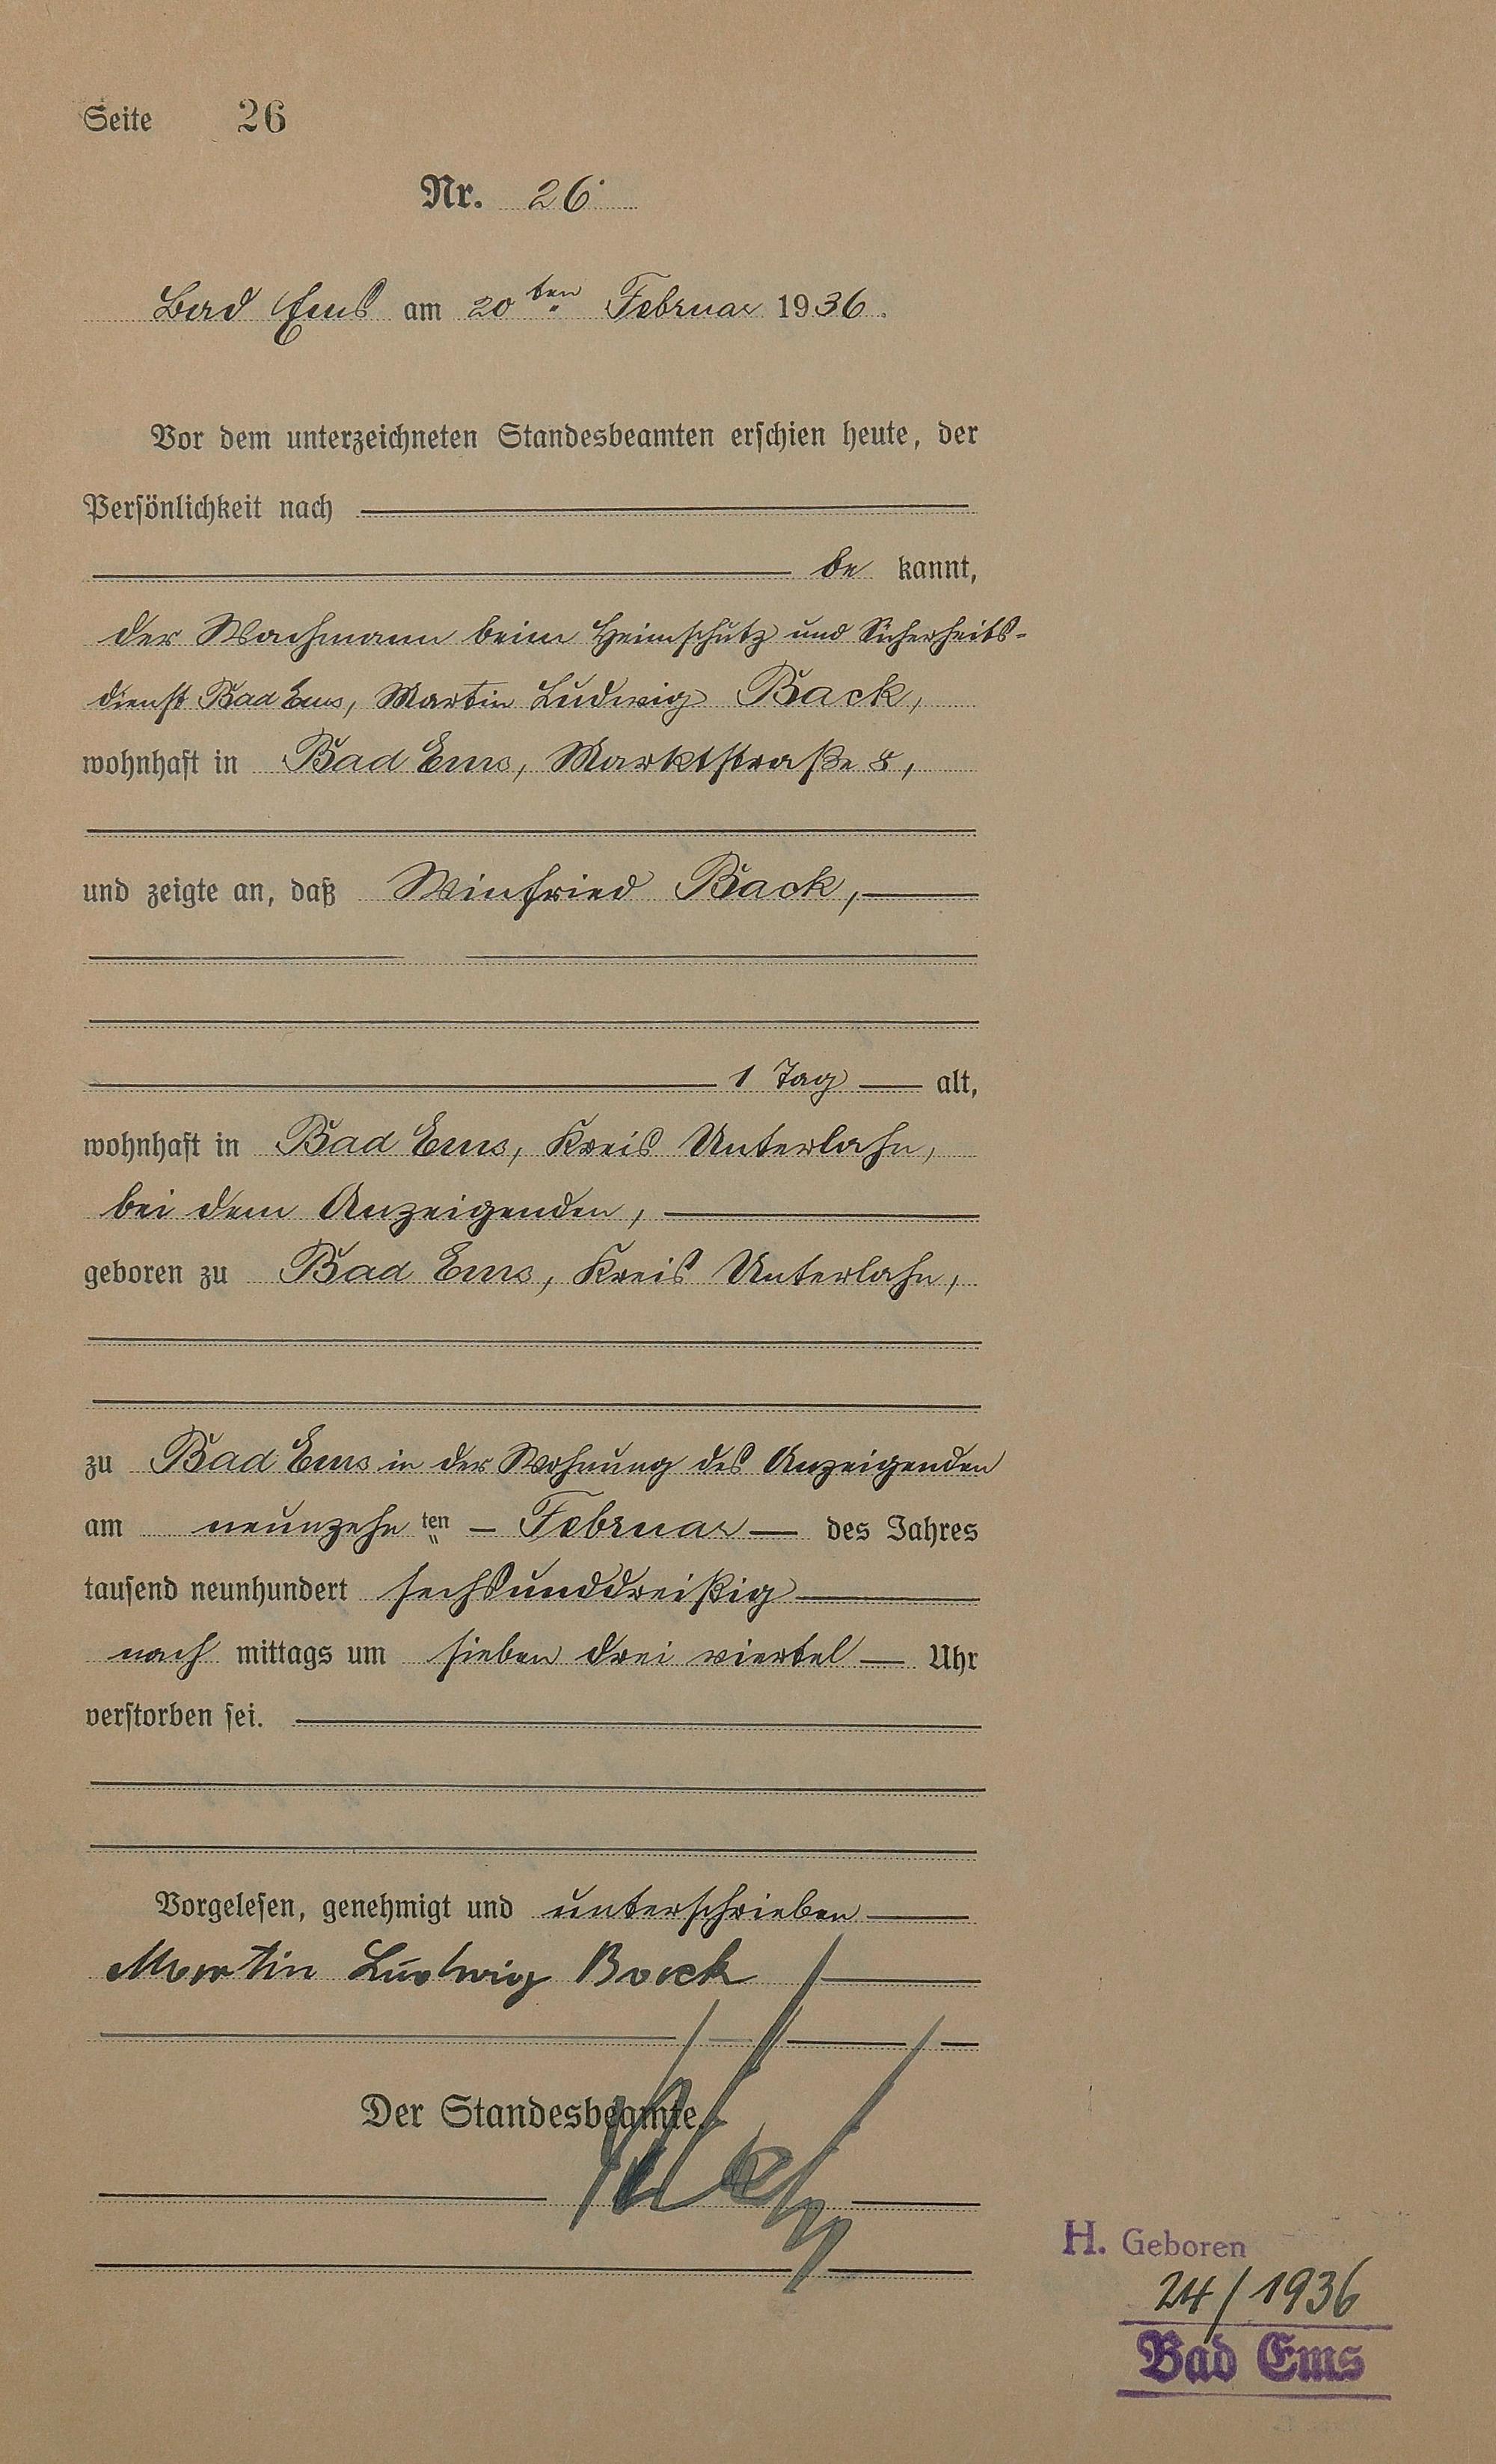 Seite 26
Nr. 26
Bad Ems am 20ten Februar 1936.
Vor dem unterzeichneten Standesbeamten erschien heute, der
Persönlichkeit nach
be kannt,
der Wachmann beim Heimschutz und Sicherheits-
dienst Bad Ems, Martin Ludwig Back,
wohnhaft in Bad Ems, Marktstraße 8,
und zeigte an, daß Winfried Back,
1 Tag alt,
wohnhaft in Bad Ems, Kreis Unterlahn,
bei dem Anzeigenden,
geboren zu Bad Ems, Kreis Unterlahn,
zu Bad Ems in der Wohnung des Anzeigenden
am neunzehn ten Februar des Jahres
tausend neunhundert sechsunddreißig
nach mittags um sieben drei viertel Uhr
verstorben sei.
Vorgelesen, genehmigt und unterschrieben
Martin Ludwig Back
Der Standesbeamte.
H. Geboren
24/1936
Bad Ems